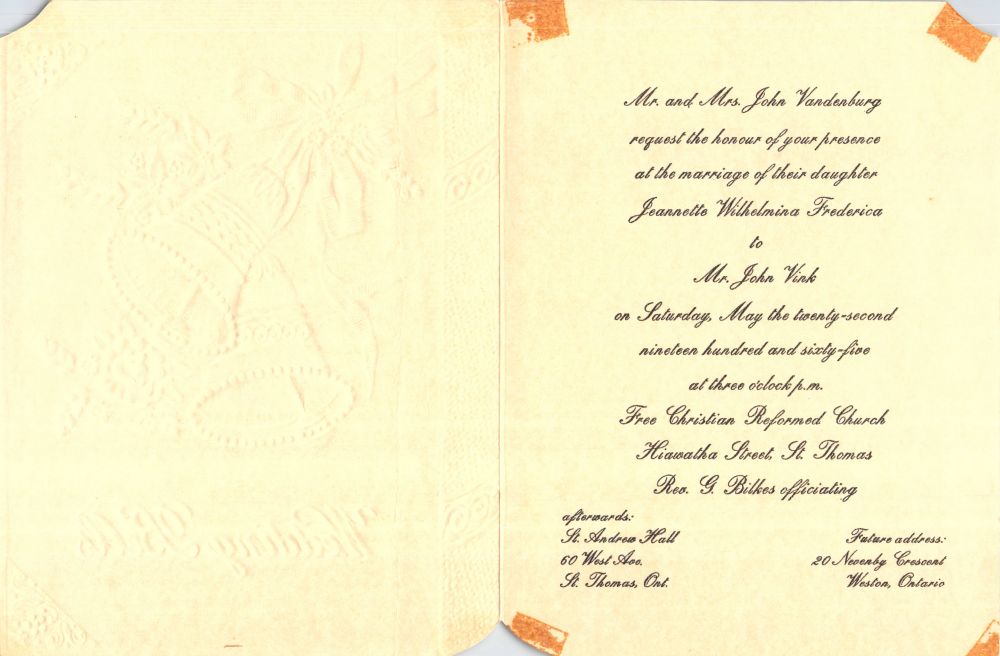 Wedding Bells
Mr. and Mrs. John Vandenburg
request the honour of your presence
at the marriage of their daughter
Jeannette Wilhelmina Frederica
to
Mr. John Vink
on Saturday, May the twenty-second
nineteen hundred and sixty-five
at three o'clock p.m.
Free Christian Reformed Church
Hiawatha Street, St. Thomas
Rev. G. Bilkes officiating
afterwards:
St. Andrew Hall
60 West Ave.
St. Thomas, Ont.
Future address:
20 Nevenby Crescent
Weston, Ontario